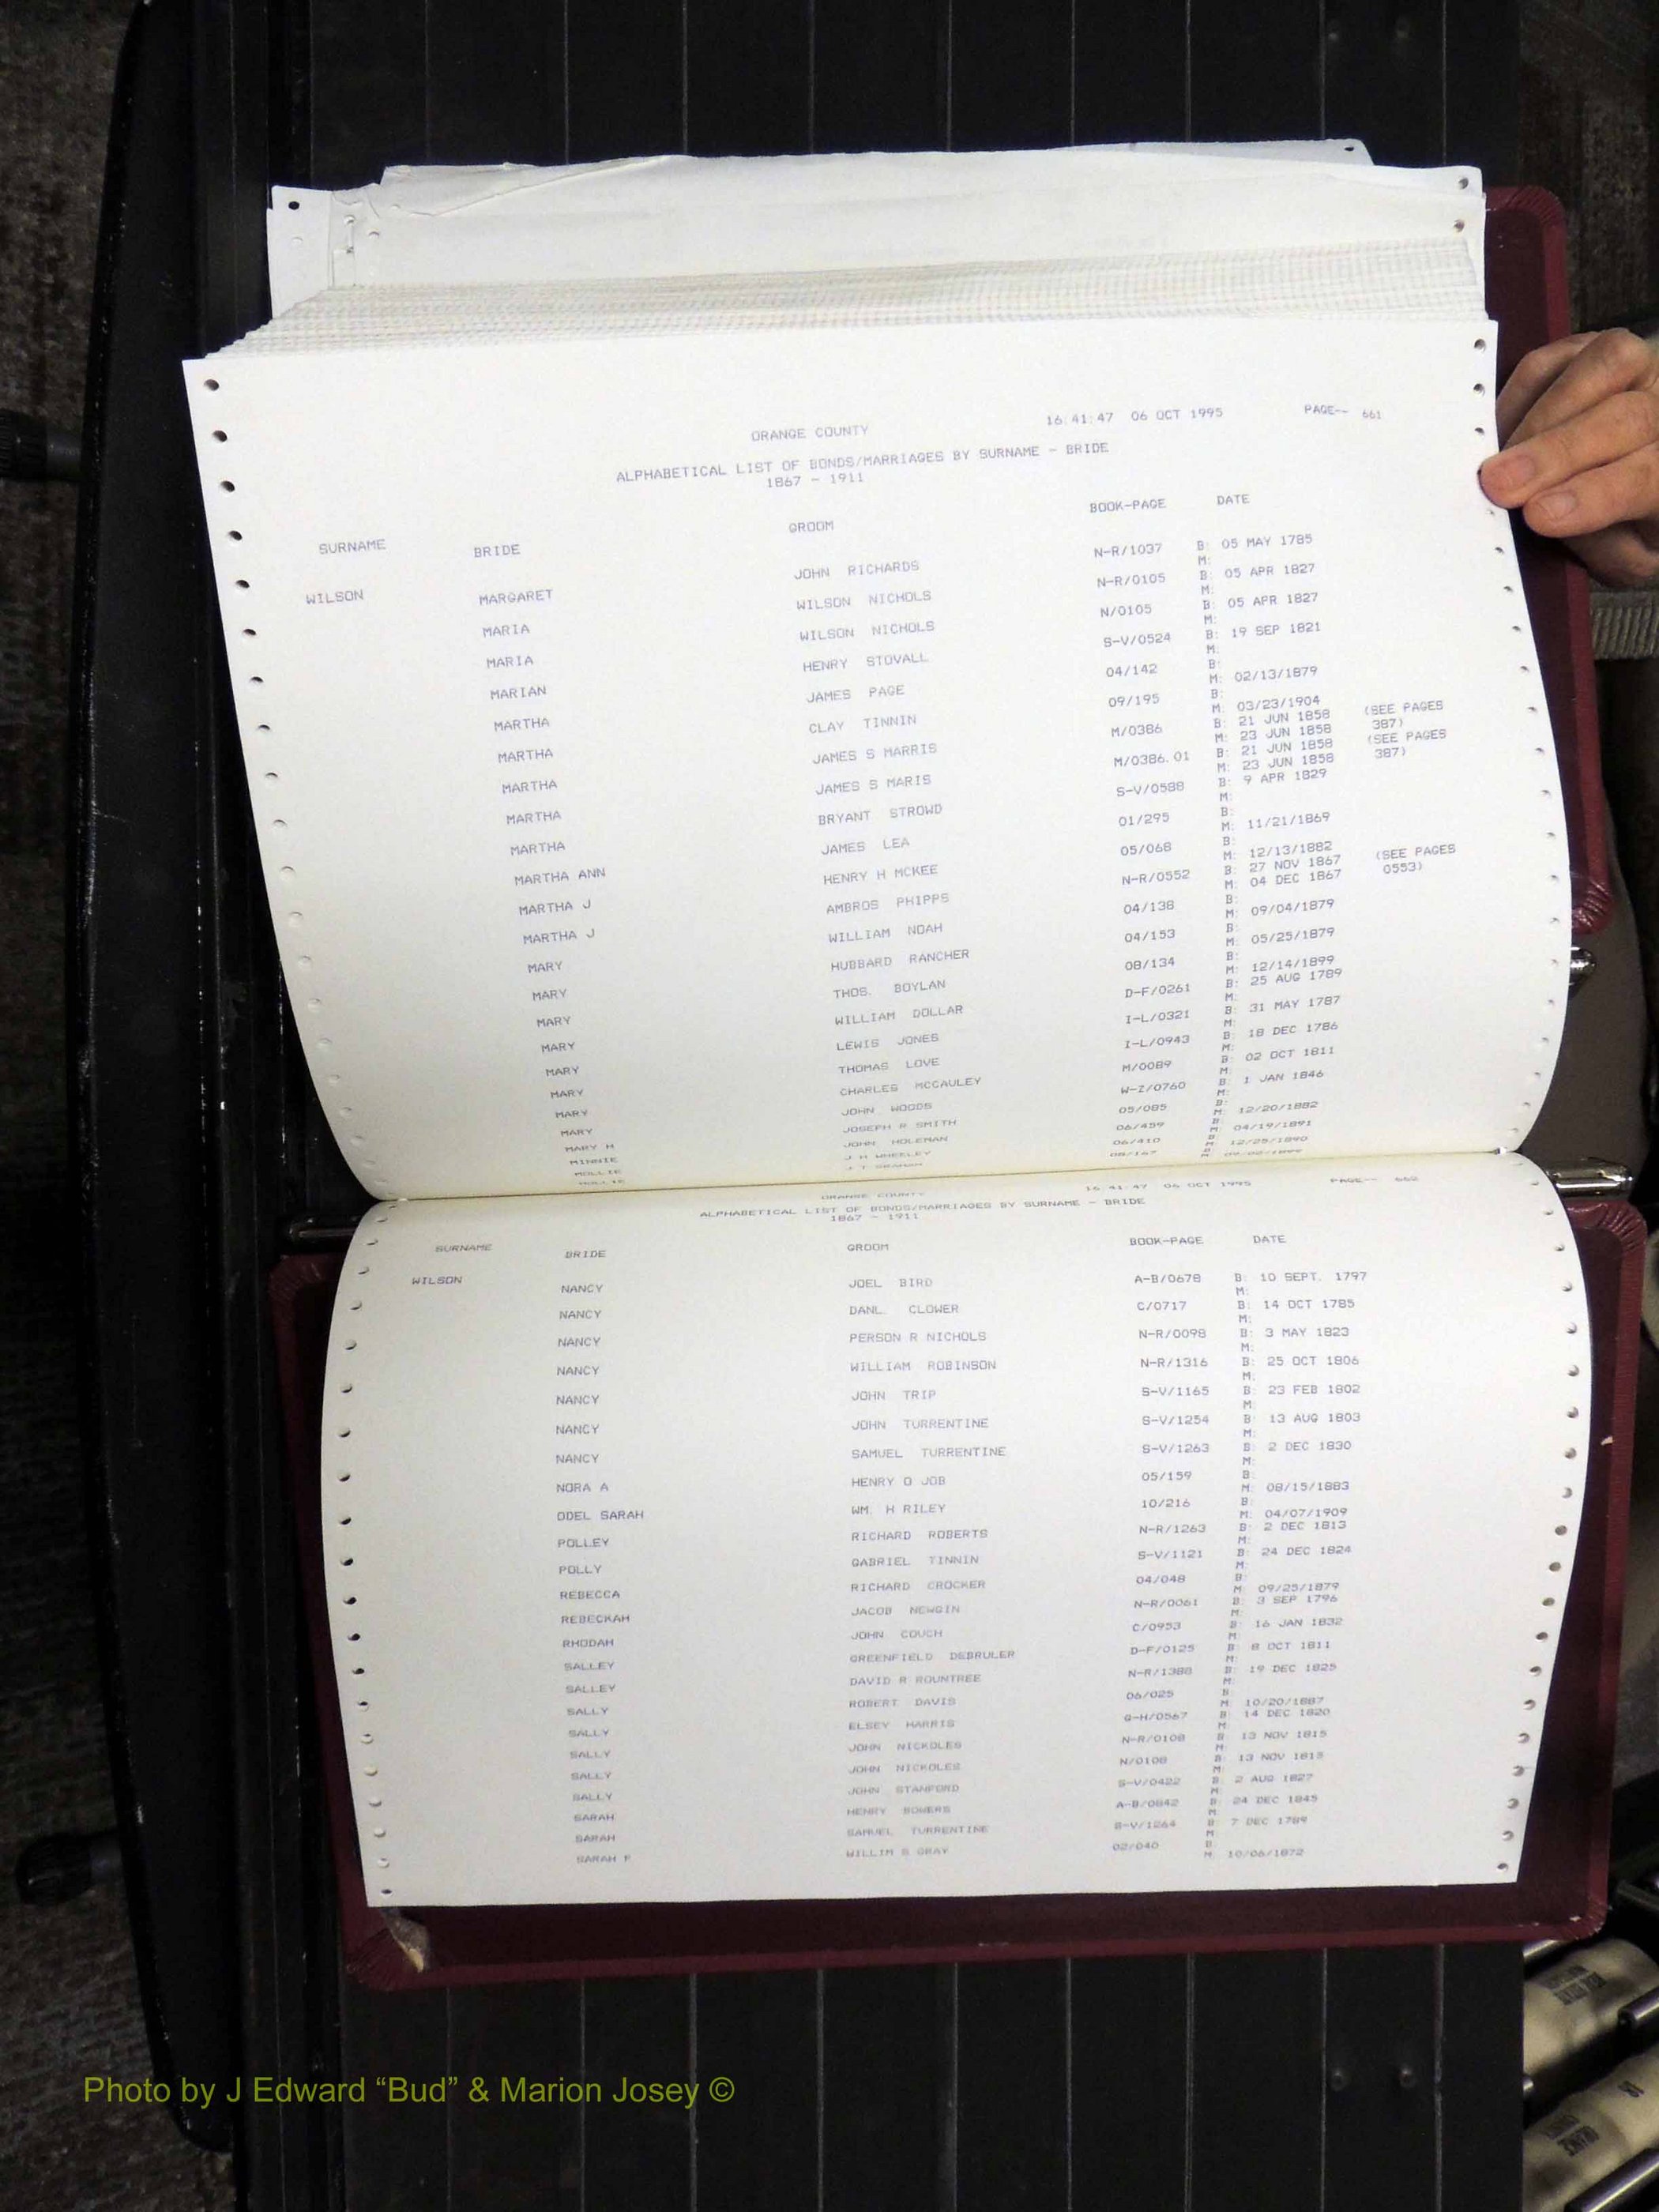 16:41:47 06 OCT 1995 PAGE-- 661
ORANGE COUNTY
ALPHABETICAL LIST OF BONDS/MARRIAGES BY SURNAME - BRIDE
1867 - 1911
SURNAME BRIDE GROOM BOOK-PAGE DATE
WILSON MARGARET JOHN RICHARDS N-R/1037 B: 05 MAY 1785
M:
MARIA WILSON NICHOLS N-R/0105 B: 05 APR 1827
M:
MARIA WILSON NICHOLS N/0105 B: 05 APR 1827
M:
MARIAN HENRY STOVALL S-V/0524 B: 19 SEP 1821
M:
MARTHA JAMES PAGE 04/142 B:
M: 02/13/1879
MARTHA CLAY TINNIN 09/195 B:
M: 03/23/1904
MARTHA JAMES S MARRIS M/0386 B: 21 JUN 1858 (SEE PAGES
M: 23 JUN 1858 387)
MARTHA JAMES S MARIS M/0386.01 B: 21 JUN 1858 (SEE PAGES
M: 23 JUN 1858 387)
MARTHA BRYANT STROWD S-V/0588 B: 9 APR 1829
M:
MARTHA ANN JAMES LEA 01/295 B:
M: 11/21/1869
MARTHA J HENRY H MCKEE 05/068 B:
M: 12/13/1882
MARTHA J AMBROS PHIPPS N-R/0552 B: 27 NOV 1867 (SEE PAGES
M: 04 DEC 1867 0553)
MARY WILLIAM NOAH 04/138 B:
M: 09/04/1879
MARY HUBBARD RANCHER 04/153 B:
M: 05/25/1879
MARY THOS. BOYLAN 08/134 B:
M: 12/14/1899
MARY WILLIAM DOLLAR D-F/0261 B: 25 AUG 1789
M:
MARY LEWIS JONES I-L/0321 B: 31 MAY 1787
M:
MARY THOMAS LOVE I-L/0943 B: 18 DEC 1786
M:
MARY CHARLES MCCAULEY M/0089 B: 02 OCT 1811
M:
MARY JOHN WOODS W-Z/0760 B: 1 JAN 1846
M:
MARY H JOSEPH R SMITH 05/085 B:
M: 12/20/1882
MINNIE JOHN HOLEMAN 06/459 B:
M: 04/19/1891
MOLLIE J H WHEELEY 06/410 B:
M: 12/25/1890
16:41:47 06 OCT 1995 PAGE-- 662
ORANGE COUNTY
ALPHABETICAL LIST OF BONDS/MARRIAGES BY SURNAME - BRIDE
1867 - 1911
SURNAME BRIDE GROOM BOOK-PAGE DATE
WILSON NANCY JOEL BIRD A-B/0678 B: 10 SEPT. 1797
M:
NANCY DANL. CLOWER C/0717 B: 14 OCT 1785
M:
NANCY PERSON R NICHOLS N-R/0098 B: 3 MAY 1823
M:
NANCY WILLIAM ROBINSON N-R/1316 B: 25 OCT 1806
M:
NANCY JOHN TRIP S-V/1165 B: 23 FEB 1802
M:
NANCY JOHN TURRENTINE S-V/1254 B: 13 AUG 1803
M:
NANCY SAMUEL TURRENTINE S-V/1263 B: 2 DEC 1830
M:
NORA A HENRY O JOB 05/159 B:
M: 08/15/1883
ODEL SARAH WM. H RILEY 10/216 B:
M: 04/07/1909
POLLEY RICHARD ROBERTS N-R/1263 B: 2 DEC 1813
M:
POLLY GABRIEL TINNIN S-V/1121 B: 24 DEC 1824
M:
REBECCA RICHARD CROCKER 04/048 B:
M: 09/25/1879
REBECKAH JACOB NEWGIN N-R/0061 B: 3 SEP 1796
M:
RHODAH JOHN COUCH C/0953 B: 16 JAN 1832
M:
SALLEY GREENFIELD DEBRULER D-F/0125 B: 8 OCT 1811
M:
SALLEY DAVID R ROUNTREE N-R/1388 B: 19 DEC 1825
M:
SALLY ROBERT DAVIS 06/025 B:
M: 10/20/1887
SALLY ELSEY HARRIS G-H/0567 B: 14 DEC 1820
M:
SALLY JOHN NICKOLES N-R/0108 B: 13 NOV 1815
M:
SALLY JOHN NICKOLES N/0108 B: 13 NOV 1815
M:
SALLY JOHN STANFORD S-V/0422 B: 2 AUG 1827
M:
SARAH HENRY BOWERS A-B/0842 B: 24 DEC 1845
M:
SARAH SAMUEL TURRENTINE S-V/1264 B: 7 DEC 1789
M:
SARAH F WILLIM S GRAY 02/040 B:
M: 10/06/1872
Photo by J Edward “Bud” & Marion Josey ©